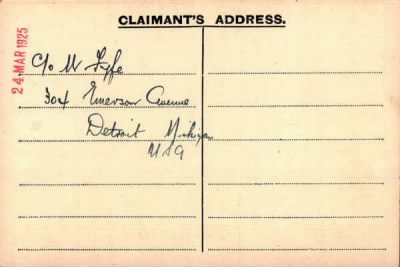 CLAIMANT'S ADDRESS.
24 MAR 1925
c/o W Fyfe
304 Emerson Avenue
Detroit Michigan
USA